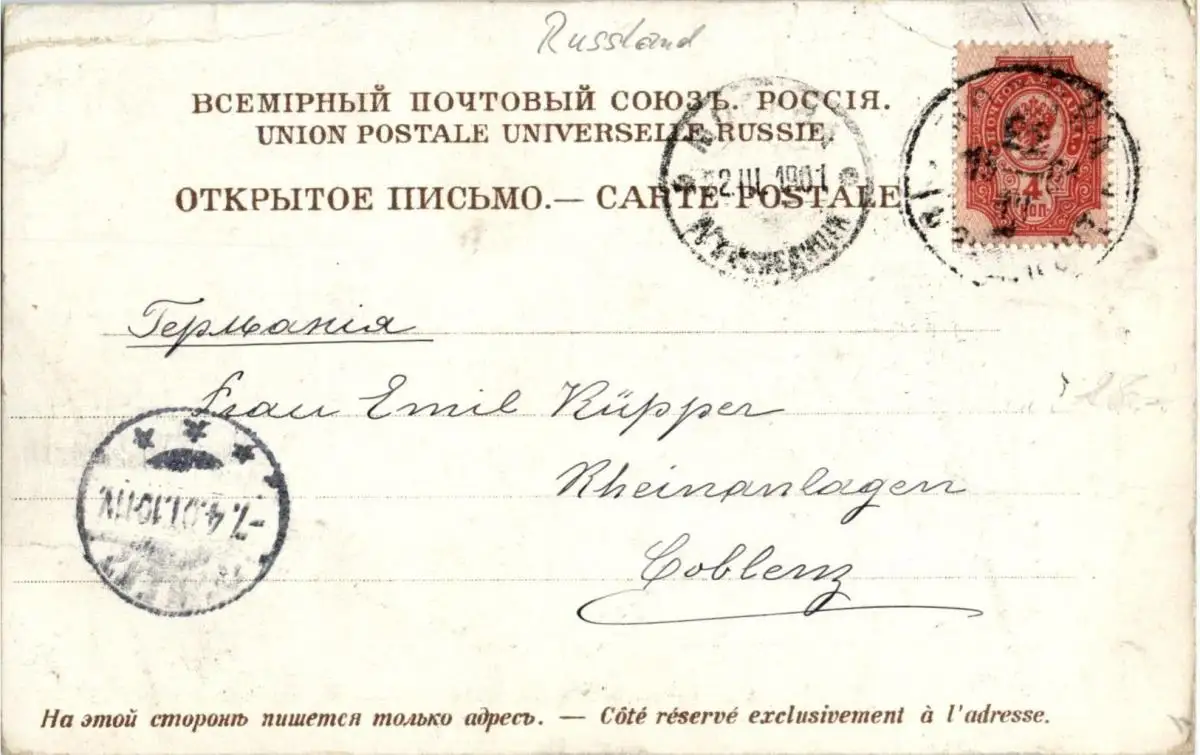 Russland
ВСЕМІРНЫЙ ПОЧТОВЫЙ СОЮЗЪ. РОССІЯ.
UNION POSTALE UNIVERSELLE RUSSIE.
ОТКРЫТОЕ ПИСЬМО. — CARTE POSTALE
2 III 1901
4
КОП.
Германія
Frau Emil Küpper
Rheinanlagen
Coblenz
-7.4.01.10-11V.
На этой сторонѣ пишется только адресъ. — Côté réservé exclusivement à l'adresse.